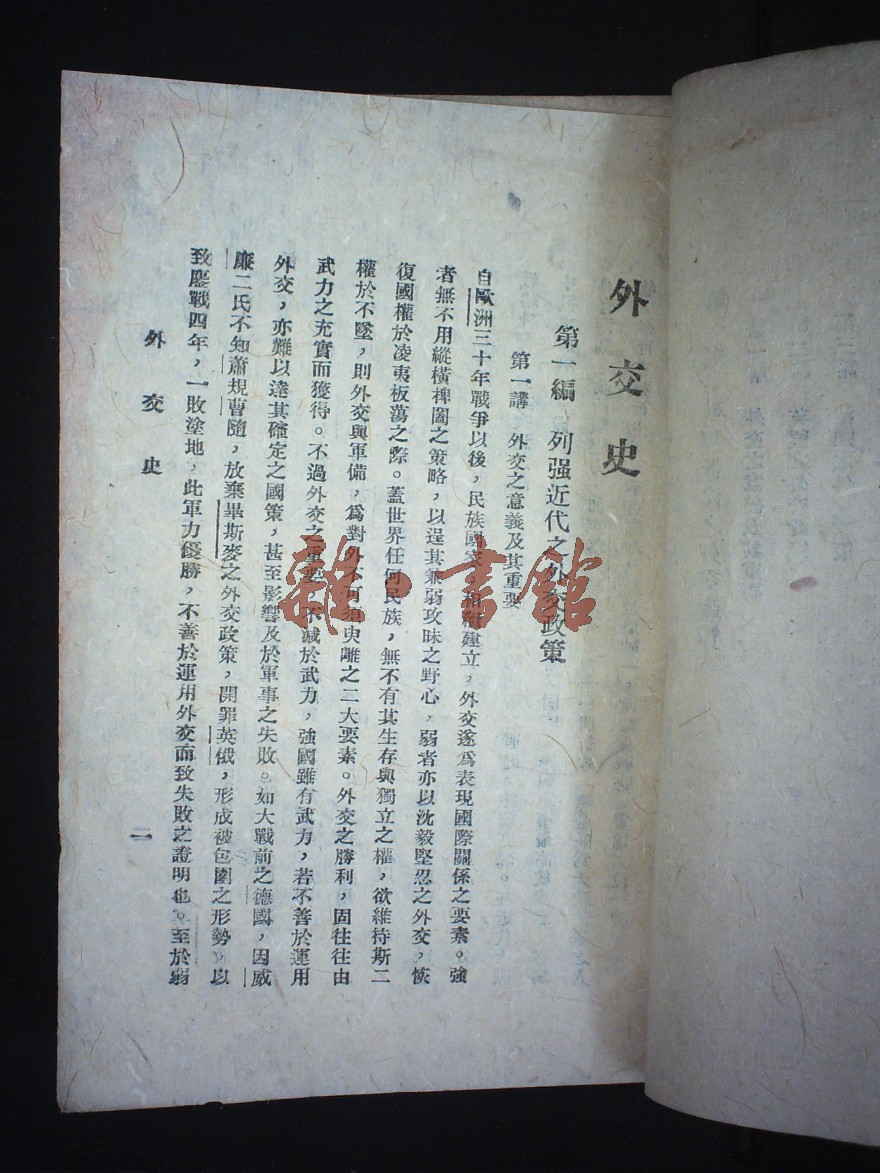 外交史
第一編 列强近代之外交政策
第一講 外交之意義及其重要
自歐洲三十年戰爭以後，民族國家相繼建立，外交遂爲表現國際關係之要素。强
者無不用縱橫捭闔之策略，以逞其兼弱攻昧之野心，弱者亦以沈毅堅忍之外交，恢
復國權於凌夷板蕩之際。蓋世界任何民族，無不有其生存與獨立之權，欲維持斯二
權於不墜，則外交與軍備，爲對外不可須臾離之二大要素。外交之勝利，固往往由
武力之充實而獲得。不過外交之重要，不减於武力，強國雖有武力，若不善於運用
外交，亦難以達其確定之國策，甚至影響及於軍事之失敗。如大戰前之德國，因威
廉二氏不知蕭規曹隨，放棄畢斯麥之外交政策，開罪英俄，形成被包圍之形勢，以
致鏖戰四年，一敗塗地，此軍力優勝，不善於運用外交而致失敗之證明也。至於弱
外交史
二
雜·書館